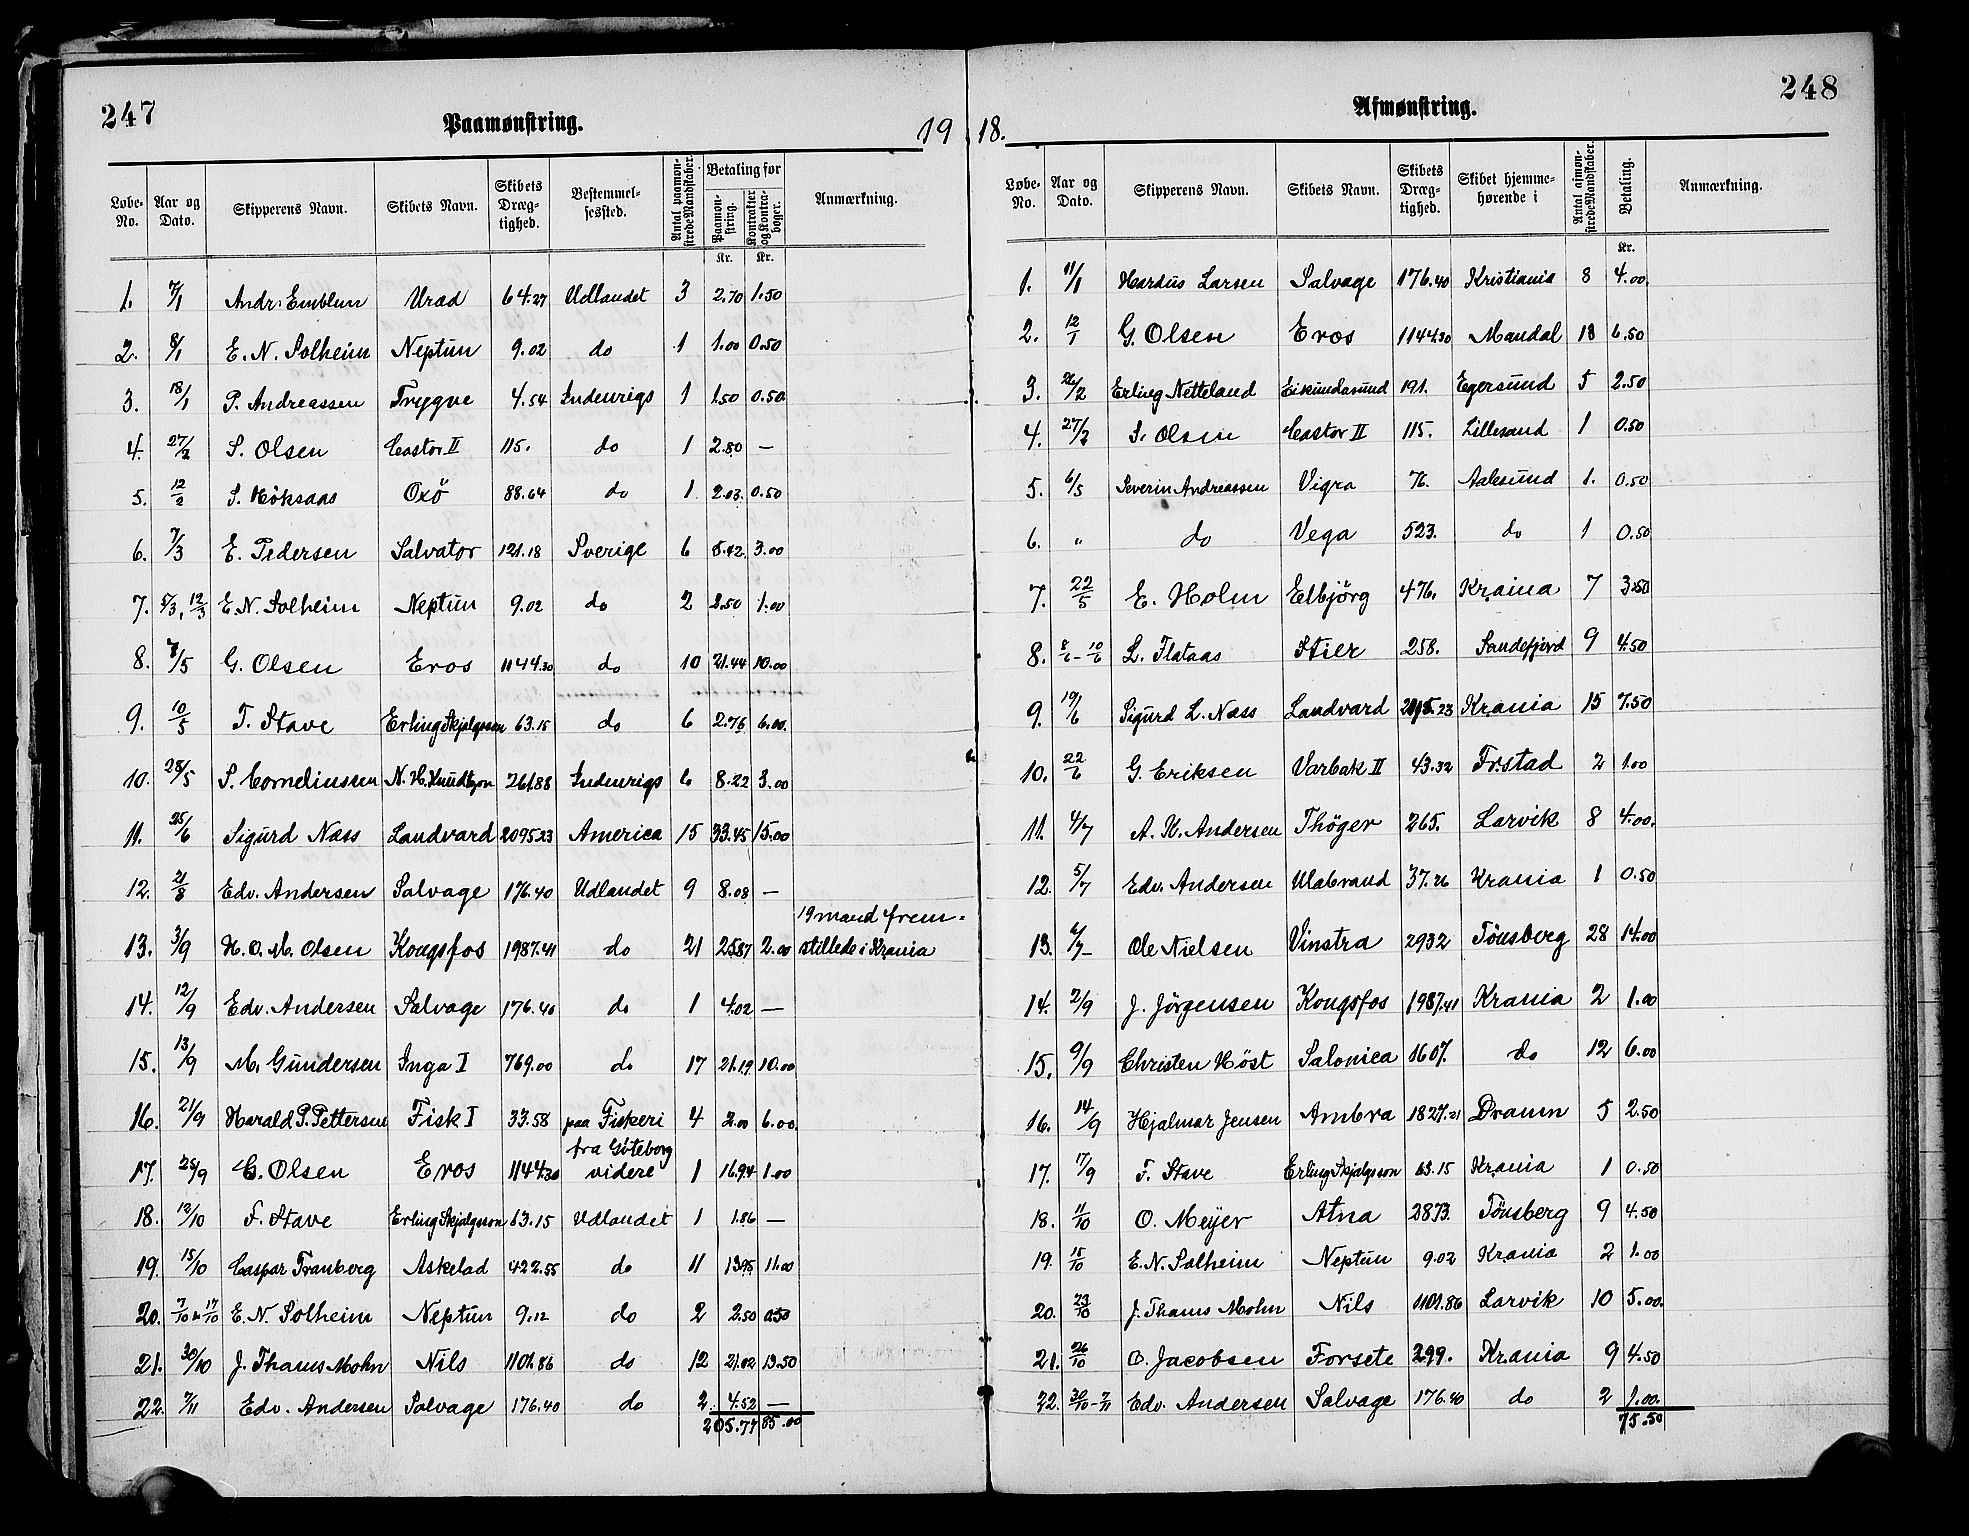 247
Paamønstring.
19
Løbe-No. Aar og Dato. Skipperens Navn. Skibets Navn. Skibets Dræg-tighed. Bestemmel-sessted. Antal paamøn-strede Mandskaber. Betaling for Paamøn-string. Kontrakter og Kontra-bøger. Anmærkning.
Kr. Kr.
1. 7/1 Andr. Emblem Urad 64.27 Udlandet 3 2.70 1.50
2. 8/1 E. N. Solheim Neptun 9.02 do 1 1.00 0.50
3. 18/1 P. Andreassen Trygve 4.54 Indenrigs 1 1.50 0.50
4. 27/2 S. Olsen Castor II 115. do 1 2.80 —
5. 12/2 S. Höksaas Oxö 88.64 do 1 2.03 0.50
6. 7/3 E. Pedersen Salvator 121.18 Sverige 6 5.42 3.00
7. 5/3, 12/3 E. N. Solheim Neptun 9.02 do 2 2.50 1.00
8. 7/5 G. Olsen Eros 1144.30 do 10 21.44 10.00
9. 10/5 T. Stave Erling Skjalgsson 63.15 do 6 2.76 6.00
10. 28/5 S. Corneliussen N. H. Knudtzon 261.88 Indenrigs 6 8.22 3.00
11. 25/6 Sigurd Næss Landvard 2095.23 America 15 33.45 15.00
12. 21/8 Edv. Andersen Salvage 176.40 Udlandet 9 8.08 —
19 mand frem-
13. 3/9 H. O. M. Olsen Kongsfos 1987.41 do 21 25.87 2.00 stillede i Krania
14. 12/9 Edv. Andersen Salvage 176.40 do 1 4.02 —
15. 13/9 M. Gundersen Inga I 769.00 do 17 21.19 10.00
16. 21/9 Harald P. Pettersen Fisk I 33.58 paa Fiskeri 4 2.00 6.00
fra Göteborg
17. 25/9 G. Olsen Eros 1144.30 videre 1 16.94 1.00
18. 12/10 F. Stave Erling Skjalgsson 63.15 Udlandet 1 1.86 —
19. 15/10 Caspar Tranberg Askelad 422.55 do 11 13.95 11.00
20. 7/10 & 17/10 E. N. Solheim Neptun 9.12 do 2 2.50 0.50
21. 30/10 J. Thams Mohn Nils 1101.86 do 12 21.02 13.50
22. 7/11 Edv. Andersen Salvage 176.40 do 2 4.52 —
205.77 85.00
248
Afmønstring.
18.
Løbe-No. Aar og Dato. Skipperens Navn. Skibets Navn. Skibets Dræg-tighed. Skibet hjemme-hørende i Antal afmøn-strede Mandskaber. Betaling. Anmærkning.
Kr.
1. 11/1 Hardus Larsen Salvage 176.40 Kristiania 8 4.00
2. 12/1 G. Olsen Eros 1144.30 Mandal 18 6.50
3. 26/2 Erling Netteland Eikundasund 191. Egersund 5 2.50
4. 27/2 S. Olsen Castor II 115. Lillesand 1 0.50
5. 6/5 Severin Andreassen Vigra 76. Aalesund 1. 0.50
6. " do Vega 523. do 1 0.50
7. 22/5 E. Holm Elbjörg 476. Kraina 7 3.50
8. 8/6 - 10/6 L. Flataas Stier 258. Sandefjord 9 4.50
9. 19/6 Sigurd L. Næss Landvard 2095.23 Krania 15 7.50
10. 22/6 G. Eriksen Varbak II 43.32 Fr.stad 2 1.00
11. 4/7 A. H. Andersen Thöger 265. Larvik 8 4.00
12. 5/7 Edv. Andersen Ulabrand 37.26 Krania 1 0.50
13. 6/7 Ole Nielsen Vinstra 2932 Tönsberg 28 14.00
14. 2/9 J. Jörgensen Kongsfos 1987.41 Krania 2 1.00
15. 9/9 Christen Höst Salonica 1607. do 12 6.00
16. 14/9 Hjalmar Jensen Ambra 1827.21 Dramn 5 2.50
17. 17/9 F. Stave Erling Skjalgsson 63.15 Krania 1 0.50
18. 11/10 O. Meÿer Atna 2873. Tönsberg 9 4.50
19. 15/10 E. N. Solheim Neptun 9.02 Krania 2 1.00
20. 23/10 J. Thams Mohn Nils 1101.86 Larvik 10 5.00
21. 26/10 O. Jacobsen Forsete 299. Krania 9 4.50
22. 30/10 - 7/11 Edv. Andersen Salvage 176.40 do 2 1.00
75.50